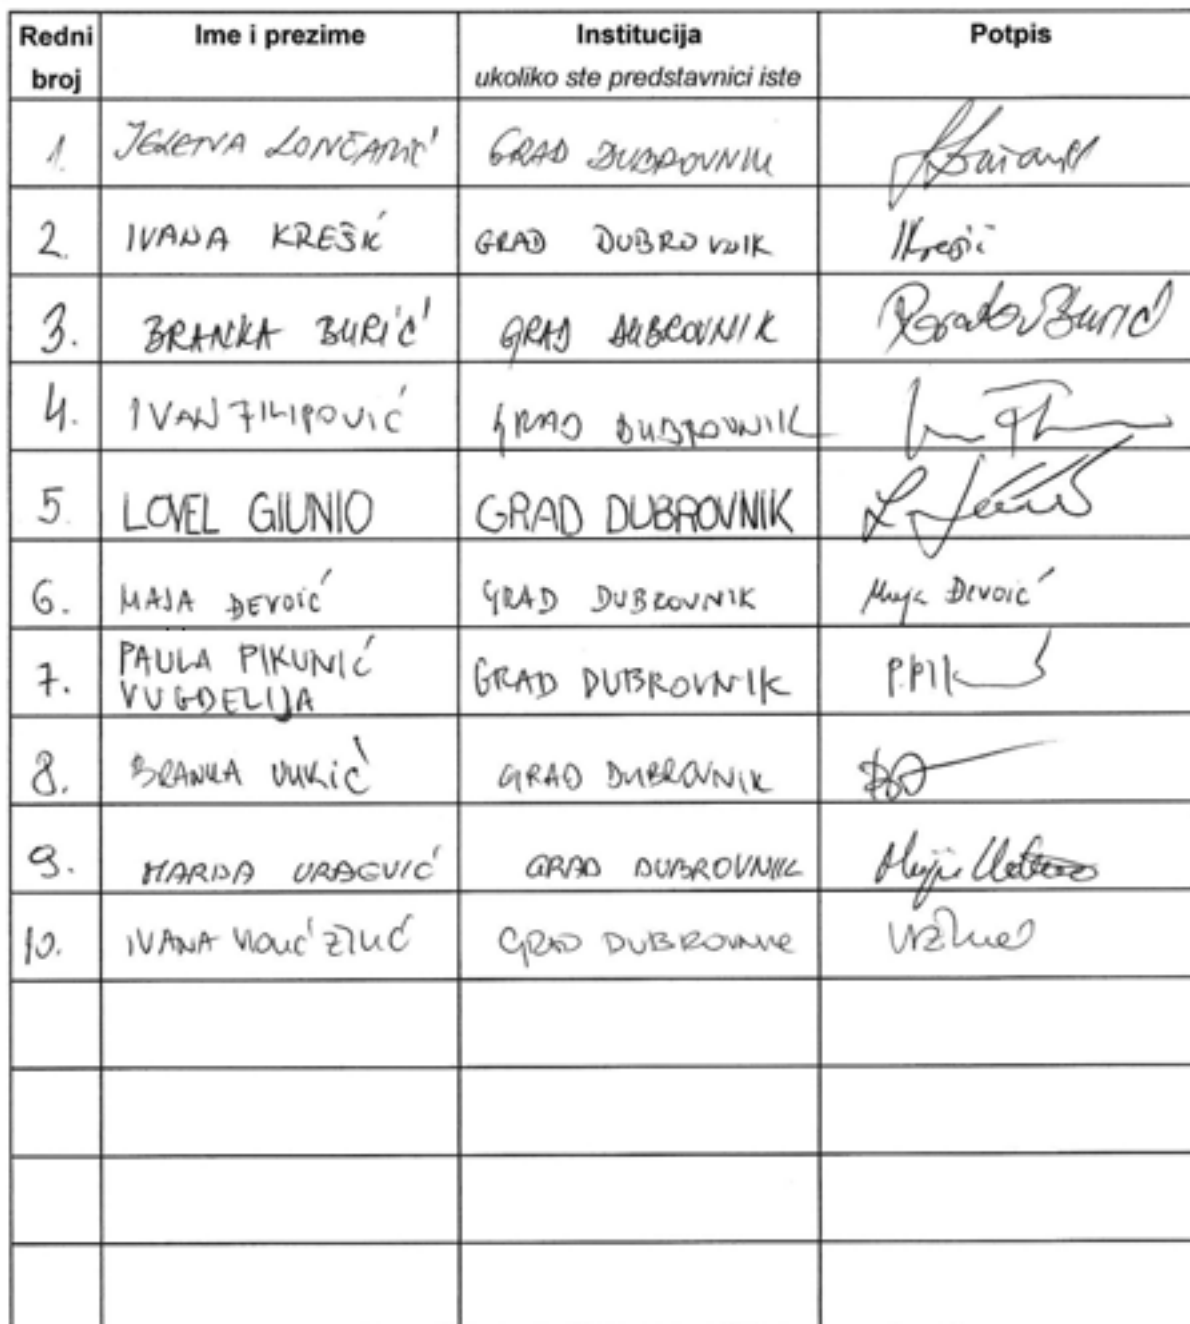 Redni broj Ime i prezime Institucija Potpis
ukoliko ste predstavnici iste
1. JELENA LONČARIĆ GRAD DUBROVNIK
2. IVANA KREŠIĆ GRAD DUBROVNIK IKrešić
3. BRANKA BURIĆ GRAD DUBROVNIK
4. IVAN FILIPOVIĆ GRAD DUBROVNIK
5. LOVEL GIUNIO GRAD DUBROVNIK
6. MAJA ĐEVOIĆ GRAD DUBROVNIK Maja Đevoić
7. PAULA PIKUNIĆ GRAD DUBROVNIK
VUGDELIJA
8. BRANKA VUKIĆ GRAD DUBROVNIK
9. GRAD DUBROVNIK
10. IVANA GRAD DUBROVNIK